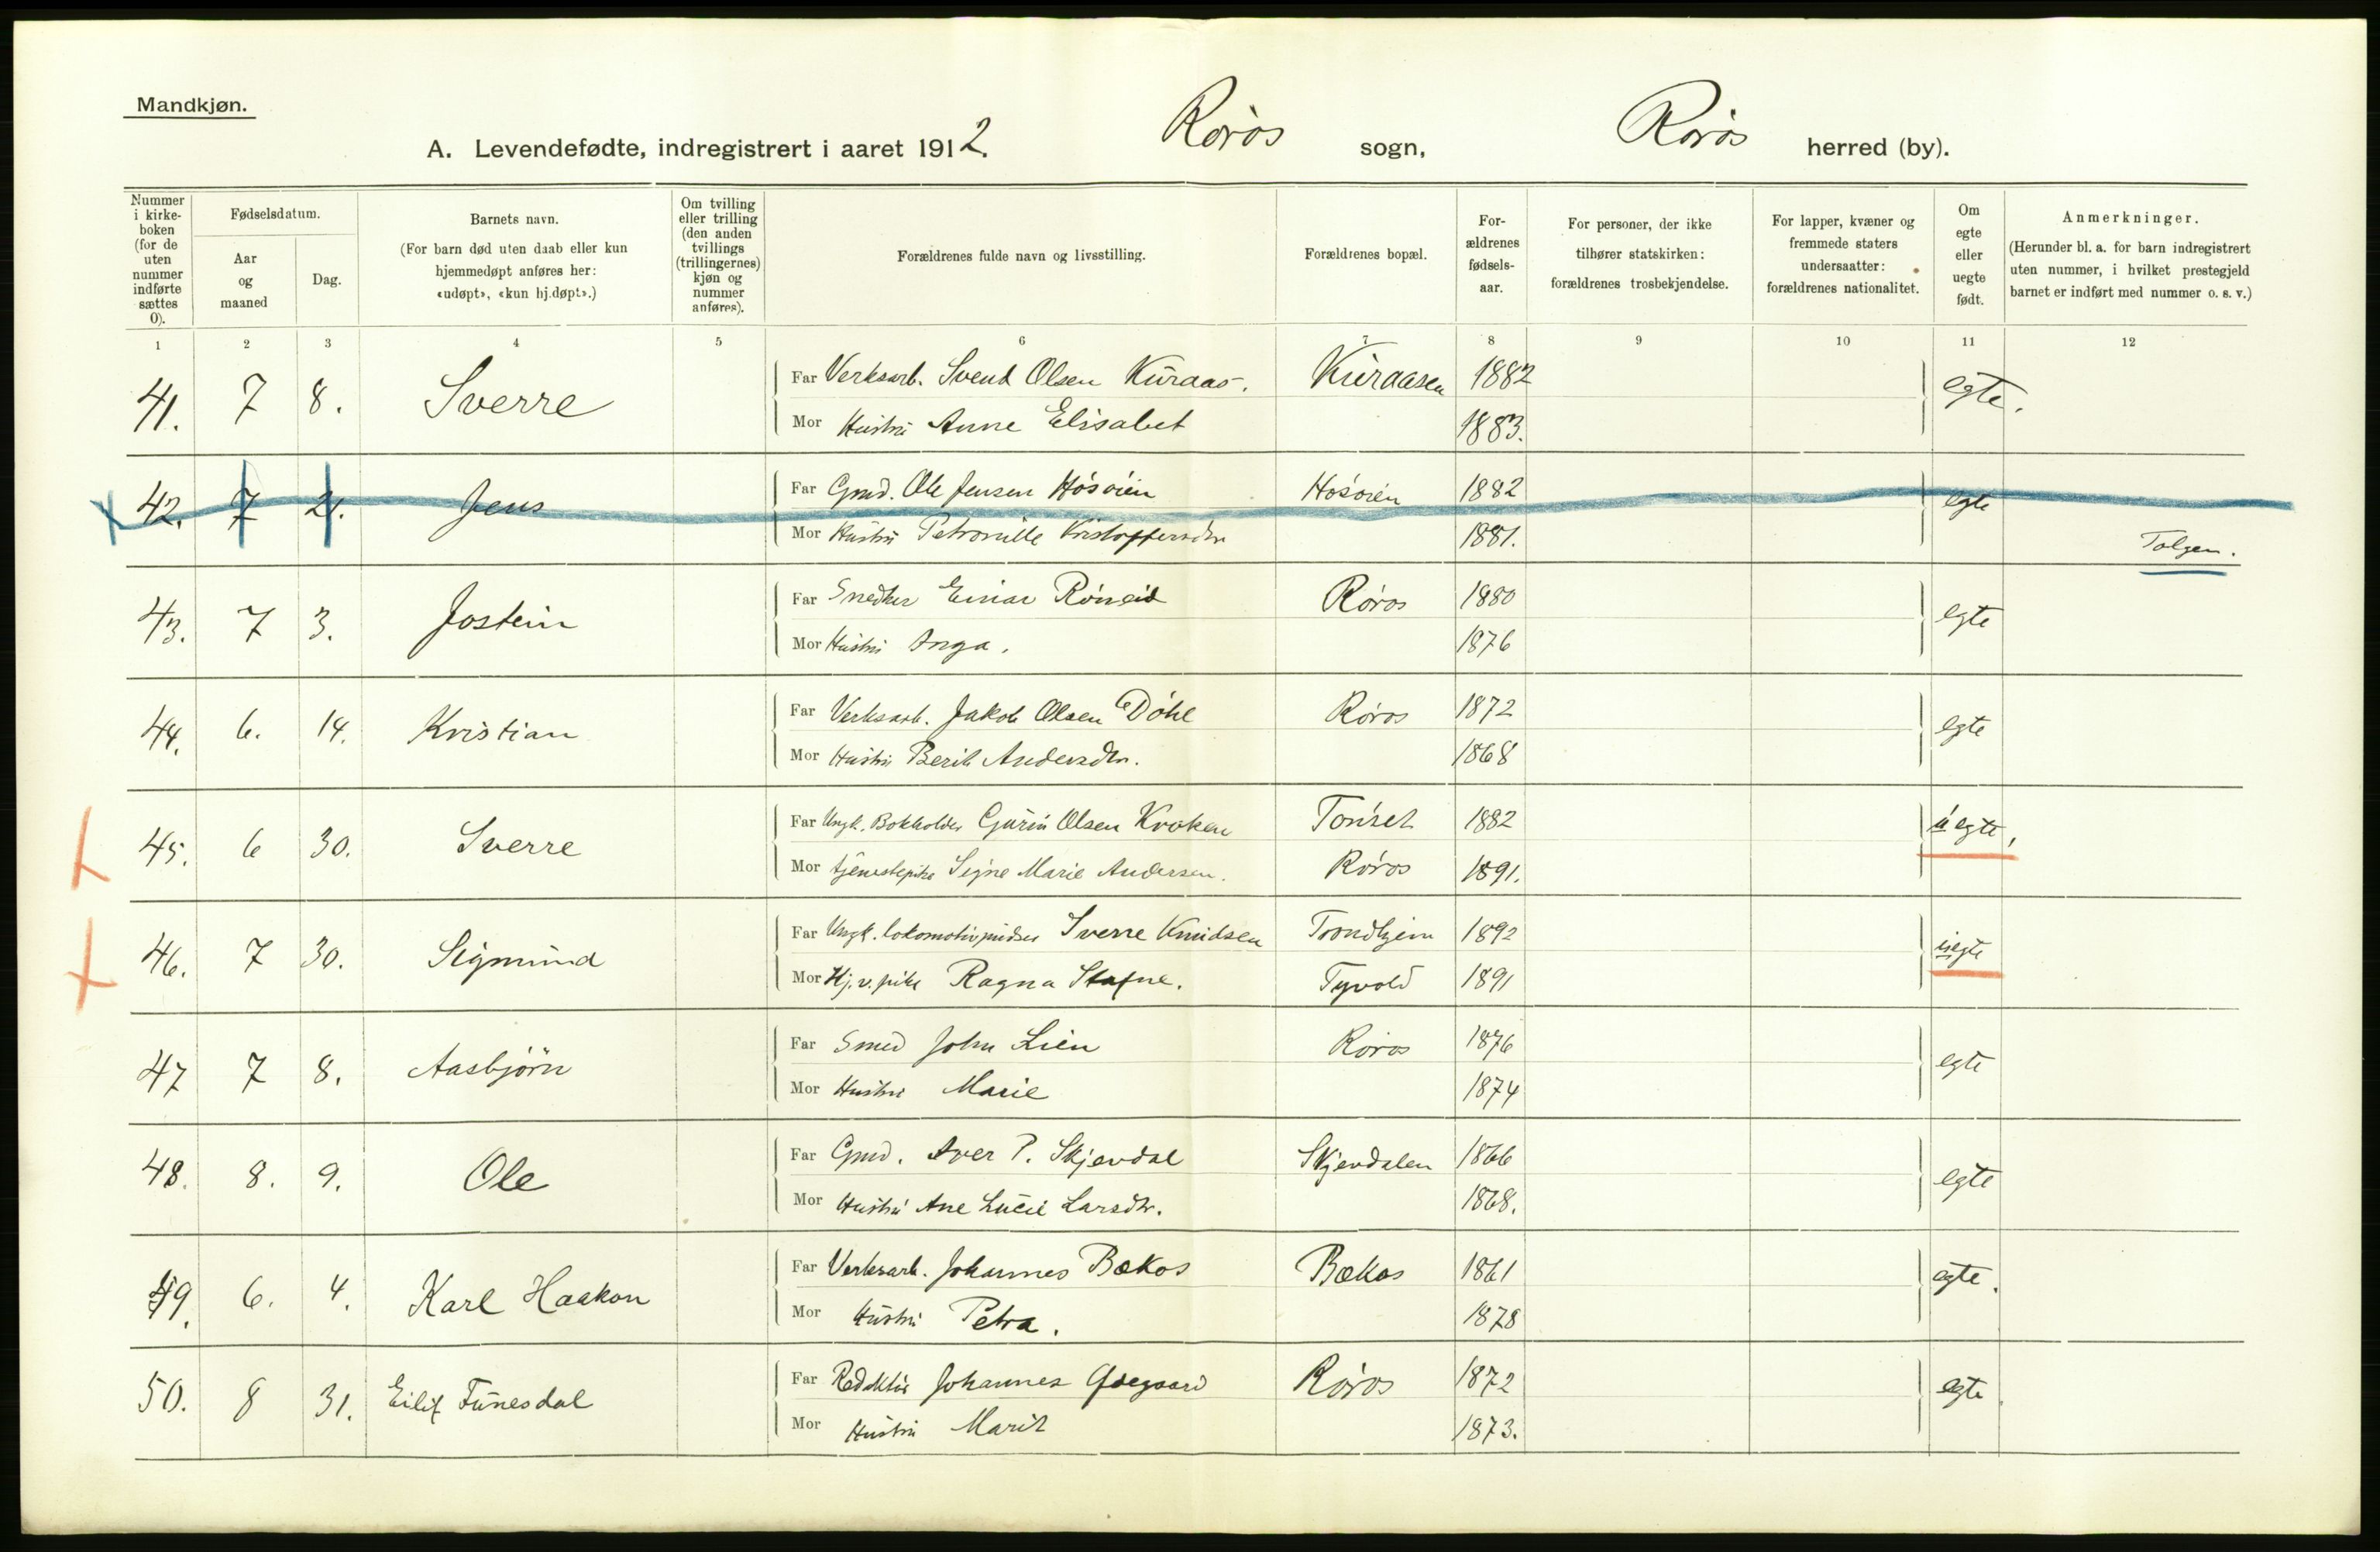 Mandkjøn.
A. Levendefødte, indregistrert i aaret 1912. Røros sogn, Røros herred (by).
Nummer i kirke-boken (for de uten nummer indførte sættes 0).
Fødselsdatum.
Aar og maaned
Dag.
Barnets navn.
(For barn død uten daab eller kun hjemmedøpt anføres her: «udøpt», «kun hj.døpt».)
Om tvilling eller trilling (den anden tvillings (trillingernes) kjøn og nummer anføres).
Forældrenes fulde navn og livsstilling.
Forældrenes bopæl.
For-ældrenes fødsels-aar.
For personer, der ikke tilhører statskirken: forældrenes trosbekjendelse.
For lapper, kvæner og fremmede staters undersaatter: forældrenes nationalitet.
Om egte eller uegte født.
Anmerkninger.
(Herunder bl. a. for barn indregistrert uten nummer, i hvilket prestegjeld barnet er indført med nummer o. s. v.)
1 2 3 4 5 6 7 8 9 10 11 12
41. 7 8. Sverre Far Verksarb. Svend Olsen Kuraas. Kuraasen 1882 egte.
Mor Hustru Anne Elisabet 1883.
42. 7 21. Jens Far Grmd. Ole Jensen Høsøien Høsøien 1882 egte
Mor Hustru Petronille Kristoffersdtr 1881. Tolgen.
43. 7 3. Jostein Far Snedker Einar Røneid Røros 1880 egte
Mor Hustru Inga. 1876
44. 6. 14. Kristian Far Verksarb. Jakob Olsen Døhl Røros 1872 egte
Mor Hustru Berit Andersdtr. 1868
45. 6 30. Sverre Far Ungk. Bokholder Guru Olsen Kroken Tønset 1882 uegte,
Mor tjenestepike Signe Marie Andersen. Røros 1891.
46. 7 30. Sigmund Far Ungk. lokomotivpudser Sverre Knudsen Trondhjem 1892 uegte
Mor Hj.v. pike Ragna Stafne. Tyvold 1891
47 7 8. Aasbjørn Far Smed John Lien Røros 1876 egte
Mor Hustru Marie 1874
48. 8. 9. Ole Far Grmd. Iver P. Skjevdal Skjevdalen 1866 egte
Mor Hustru Ane Lucie Larsdtr. 1868.
49. 6. 4. Karl Haakon Far Verksarb. Johannes Bækos Bækos 1861 egte.
Mor Hustru Petra. 1878
50. 8 31. Eilif Funesdal Far Redaktør Johannes Røros 1872 egte
Mor Hustru Marit 1873.